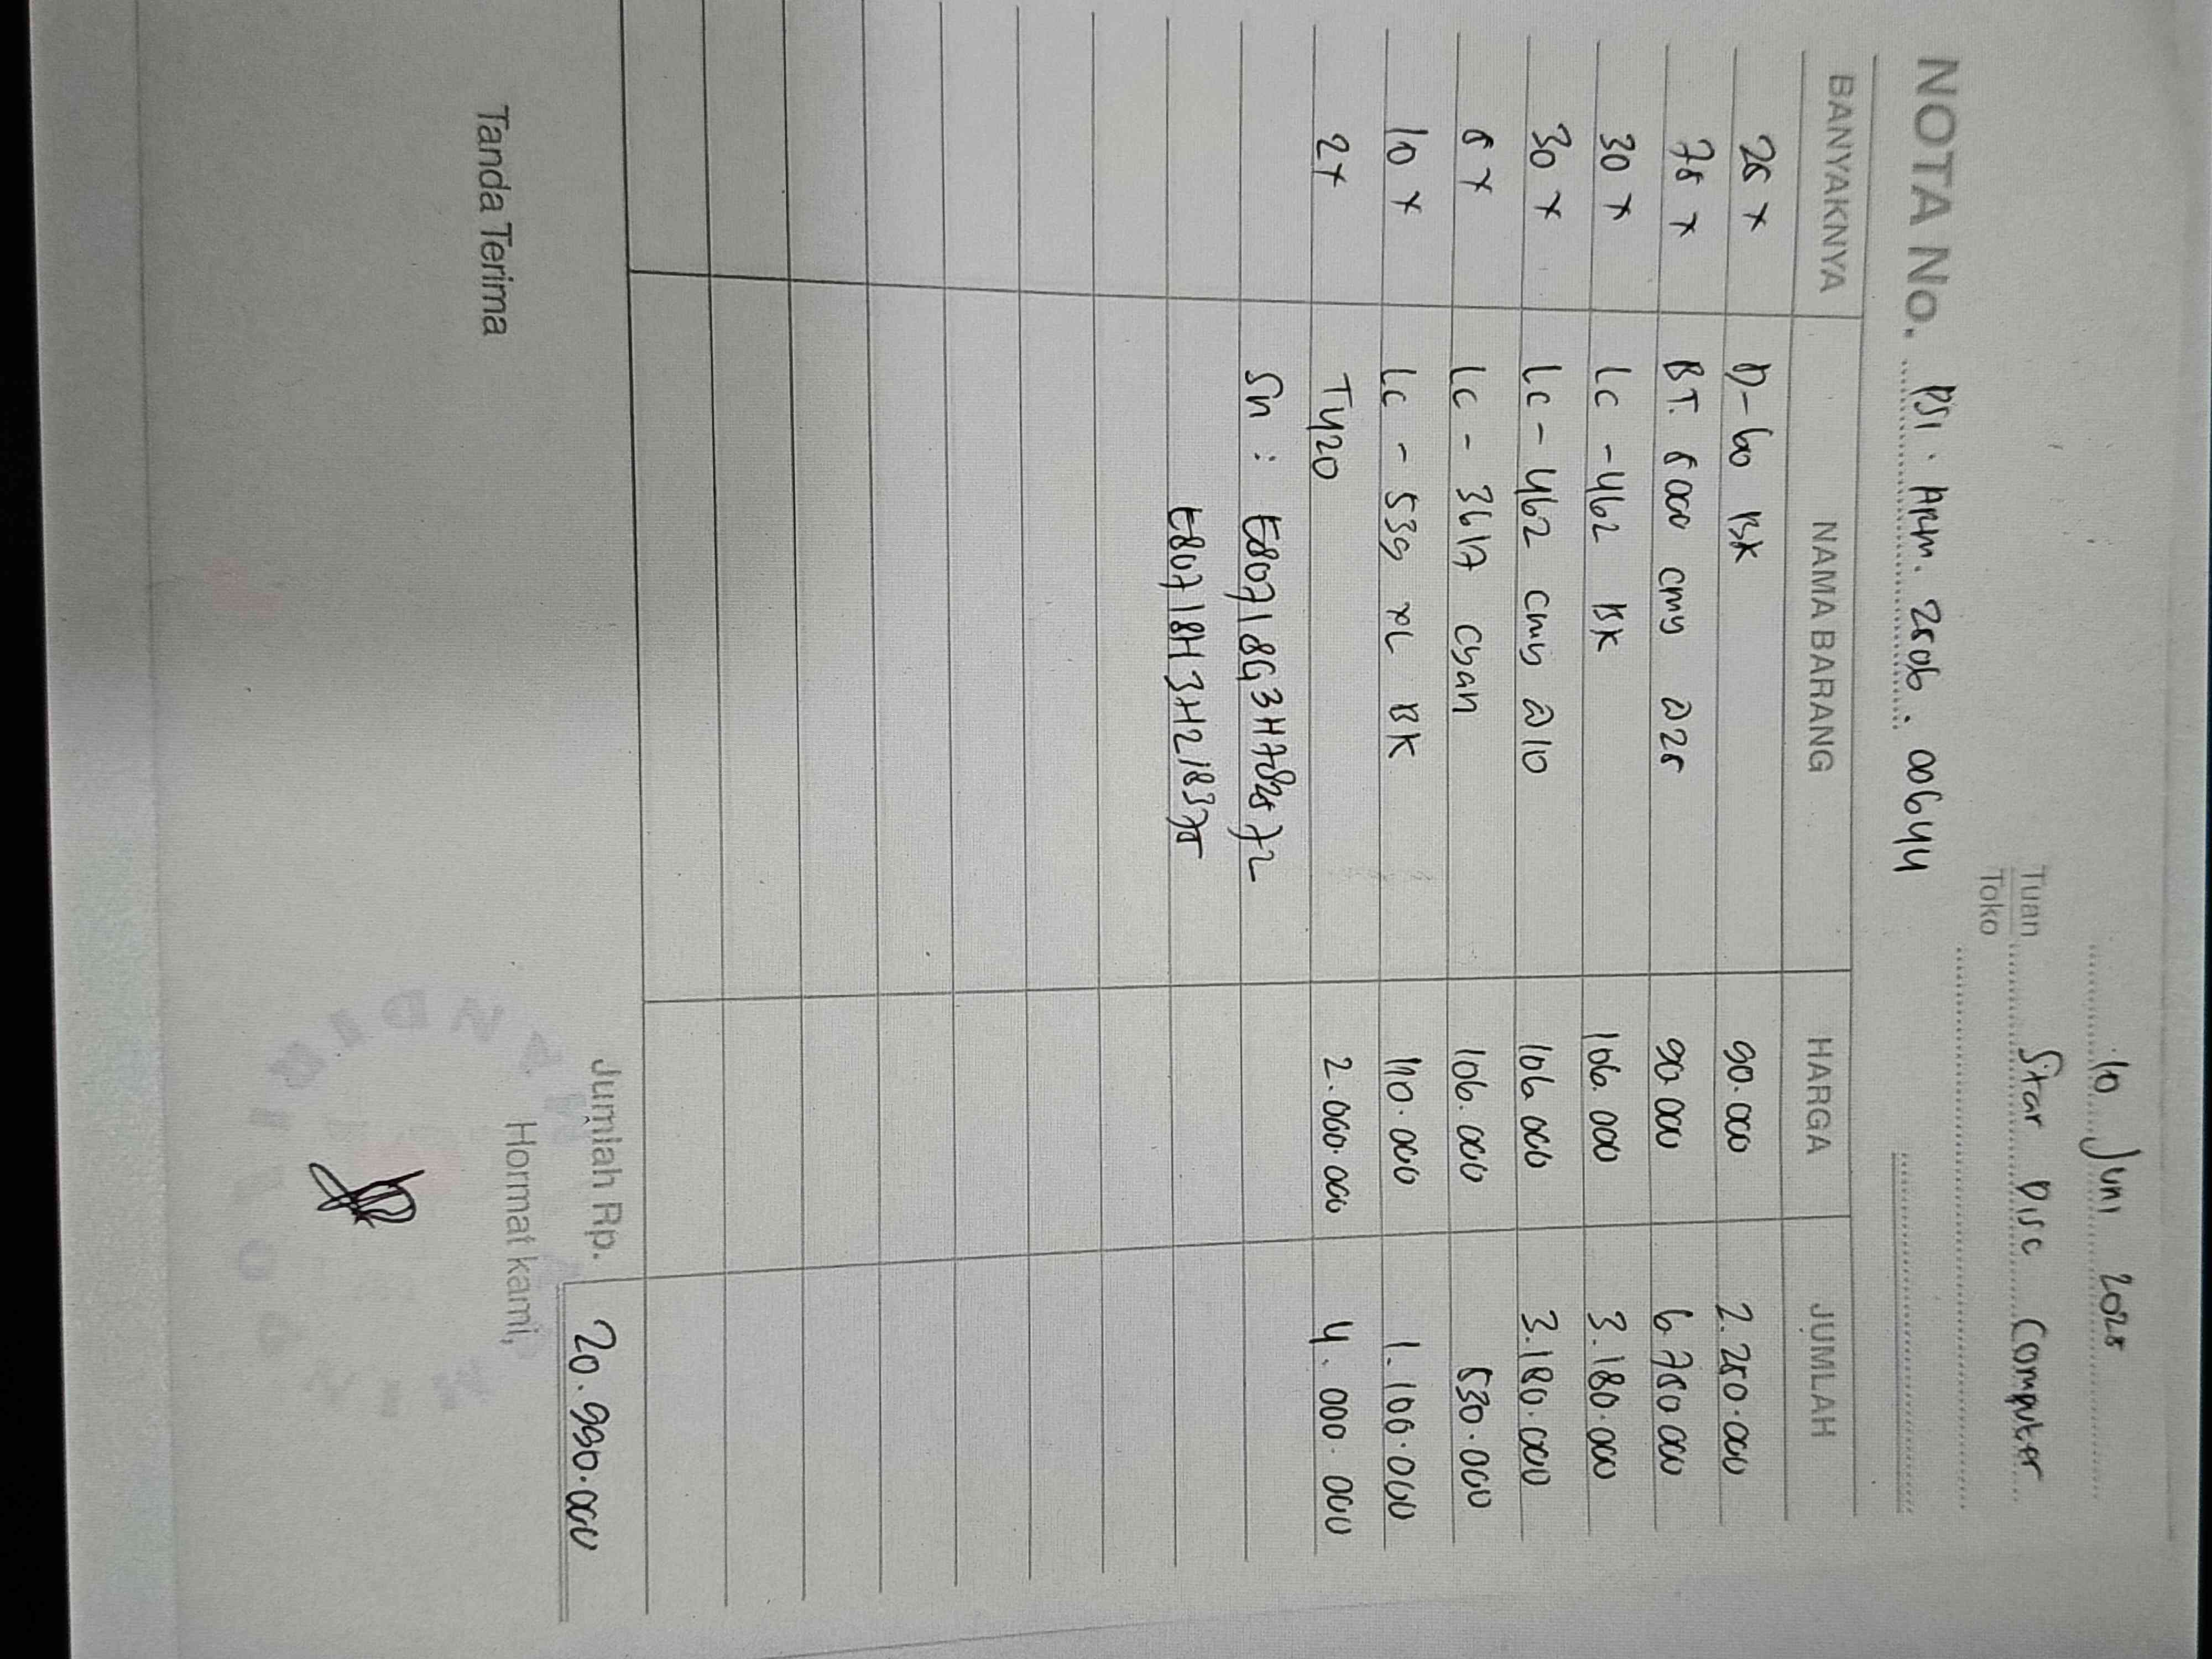 10 Juni 2025
Tuan Star Disc Computer
Toko
NOTA No. PSI. APM. 2506. 00644
BANYAKNYA NAMA BARANG HARGA JUMLAH
25 x D-60 BK 90.000 2.250.000
75 x BT. 5000 cmy @25 90.000 6.750.000
30 x LC -462 BK 106.000 3.180.000
30 x LC-462 cmy @10 106.000 3.180.000
5 x LC - 3617 cyan 106.000 530.000
10 x LC - 539 XL BK 110.000 1.100.000
2x T420 2.000.000 4.000.000
Sn : E80718G3H782572
E80718H3H218375
Jumlah Rp. 20.990.000
Tanda Terima Hormat kami,